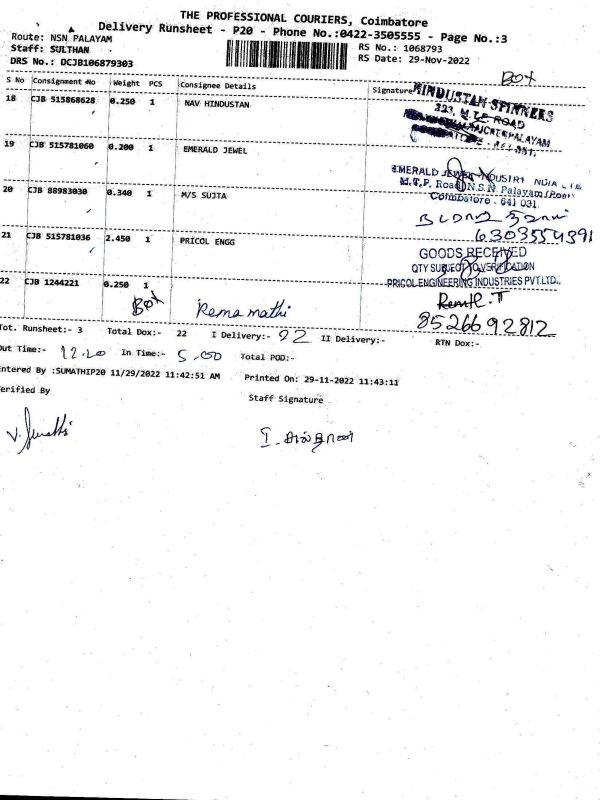 THE PROFESSIONAL COURIERS, Coimbatore
Delivery Runsheet - P20 - Phone No.:0422-3505555 - Page No.:3
Route: NSN PALAYAM
Staff: SULTHAN
RS No.: 1068793
DRS No.: DCJB106879303
RS Date: 29-Nov-2022
Box
S No Consignment No Weight PCS Consignee Details Signature
18 CJB 515868628 0.250 1 NAV HINDUSTAN
HINDUSTAN SPINNERS
323, M.T.P. ROAD
19 CJB 515781060 0.200 1 EMERALD JEWEL
EMERALD JEWEL INDUSTRY INDIA LTD
M.T.P. Road N.S.N. Palayam (Post)
Coimbatore - 641 031.
20 CJB 88983030 0.340 1 M/S SUJTA
6303554391
21 CJB 515781036 2.450 1 PRICOL ENGG
GOODS RECEIVED
QTY SUBJECT TO VERIFICATION
PRICOL ENGINEERING INDUSTRIES PVT.LTD.,
22 CJB 1244221 0.250 1
Box
Rema mathi
8526692812
Tot. Runsheet:- 3 Total Dox:- 22 I Delivery:- 22 II Delivery:- RTN Dox:-
Out Time:- 12.20 In Time:- 5.00 Total POD:-
Entered By :SUMATHIP20 11/29/2022 11:42:51 AM Printed On: 29-11-2022 11:43:11
Verified By Staff Signature